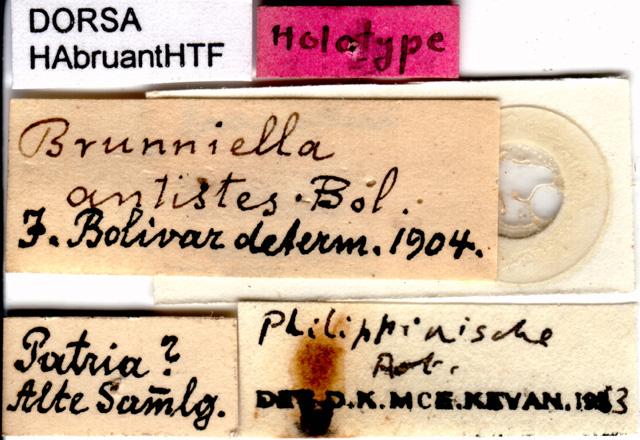 DORSA
HAbruantHTF
Holotype
Brunniella
antistes. Bol.
J. Bolivar determ. 1904.
Patria?
Alte Sam̄lg.
Philippinische
DET. D.K. MCE. KEVAN. 1963